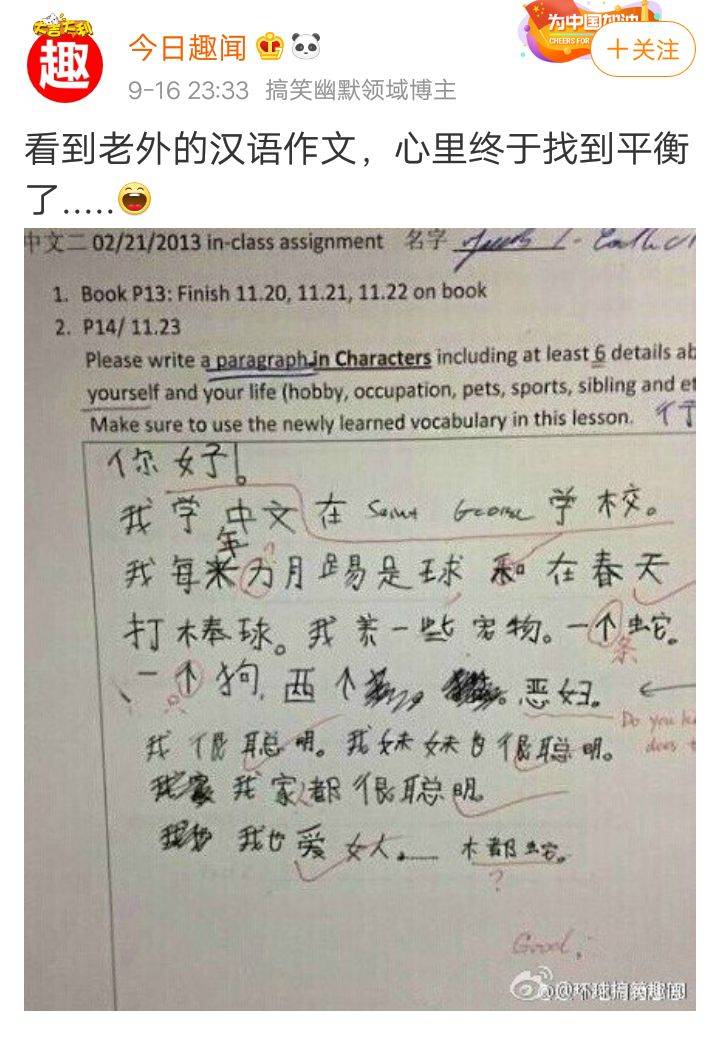 为中国加油
CHEERS FOR
趣
今日趣闻
+关注
9-16 23:33 搞笑幽默领域博主
看到老外的汉语作文，心里终于找到平衡
了.....
中文二 02/21/2013 in-class assignment 名字
1. Book P13: Finish 11.20, 11.21, 11.22 on book
2. P14/ 11.23
Please write a paragraph in Characters including at least 6 details ab
yourself and your life (hobby, occupation, pets, sports, sibling and et
Make sure to use the newly learned vocabulary in this lesson.
你好！
我学中文在 Saint George 学校。
年
我每米力月踢是球和在春天
打棒球。我养一些宠物。一个蛇。
条
一个狗，两个 恶妇。
Do you k
does t
我很聪明。我妹妹也很聪明。
我家都很聪明。
我也爱女人。 木都蛇。
?
Good!
@环球搞笑趣闻